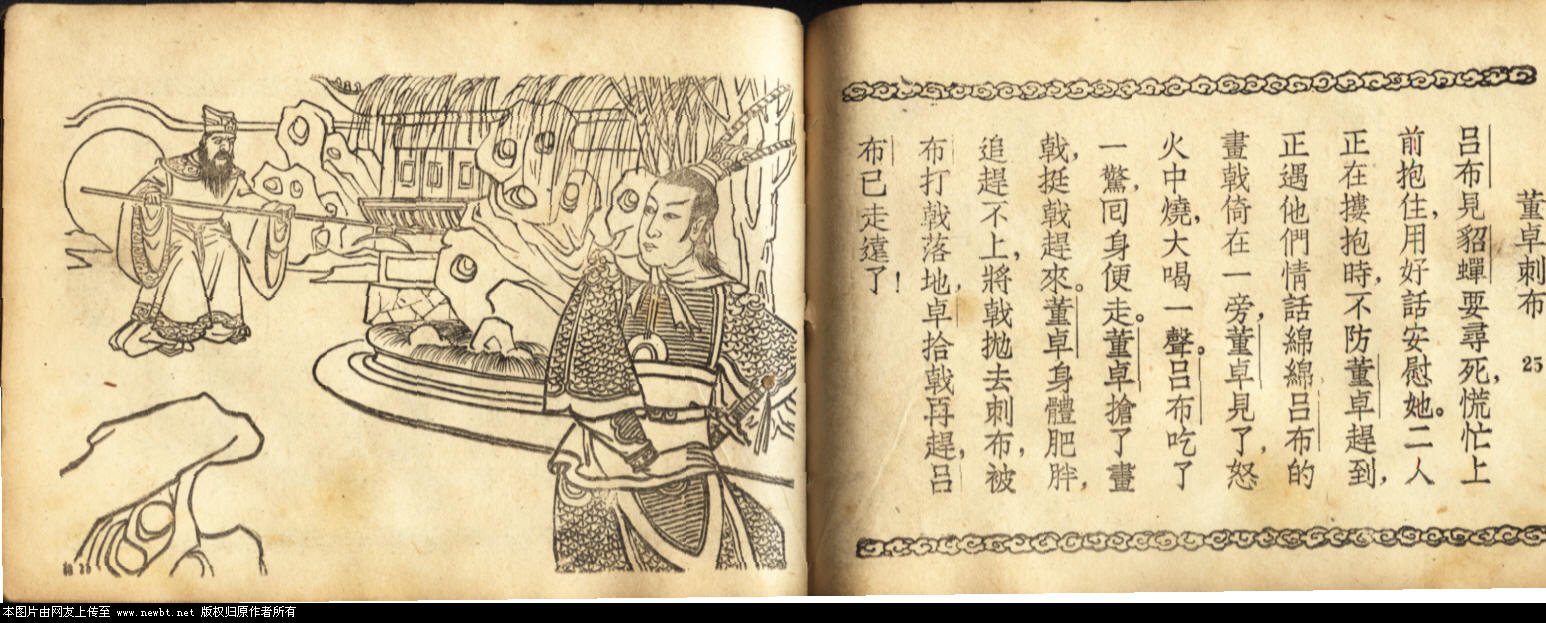 董卓刺布 25
呂布見貂蟬要尋死,慌忙上
前抱住,用好話安慰她。二人
正在摟抱時,不防董卓趕到,
正遇他們情話綿綿,呂布的
畫戟倚在一旁,董卓見了,怒
火中燒,大喝一聲。呂布吃了
一驚,囘身便走。董卓搶了畫
戟,挺戟趕來。董卓身體肥胖,
追趕不上,將戟拋去刺布,被
布打戟落地,卓拾戟再趕,呂
布已走遠了!
本图片由网友上传至 www.newbt.net 版权归原作者所有